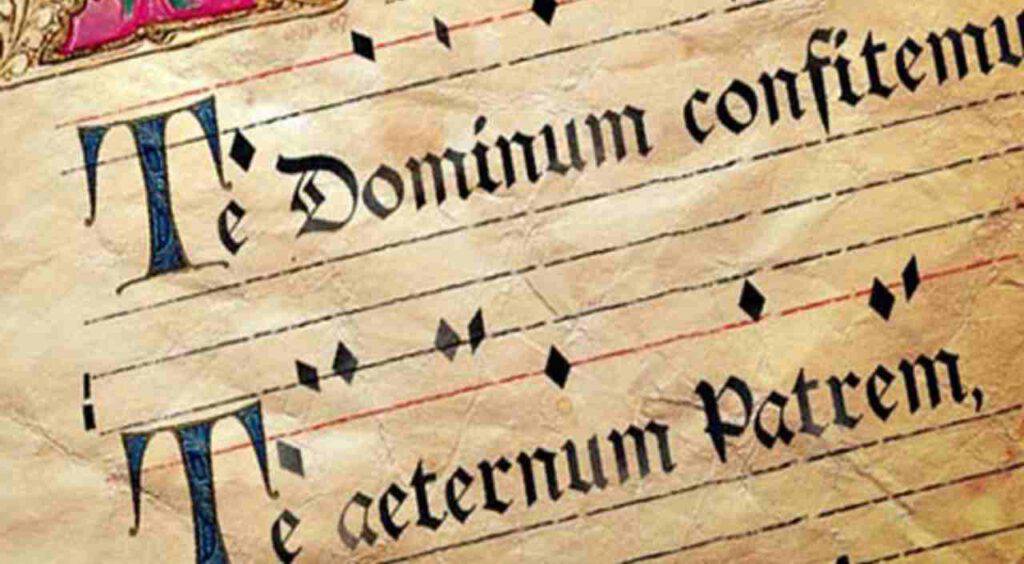 Te Dominum confitemu
Te aeternum Patrem,